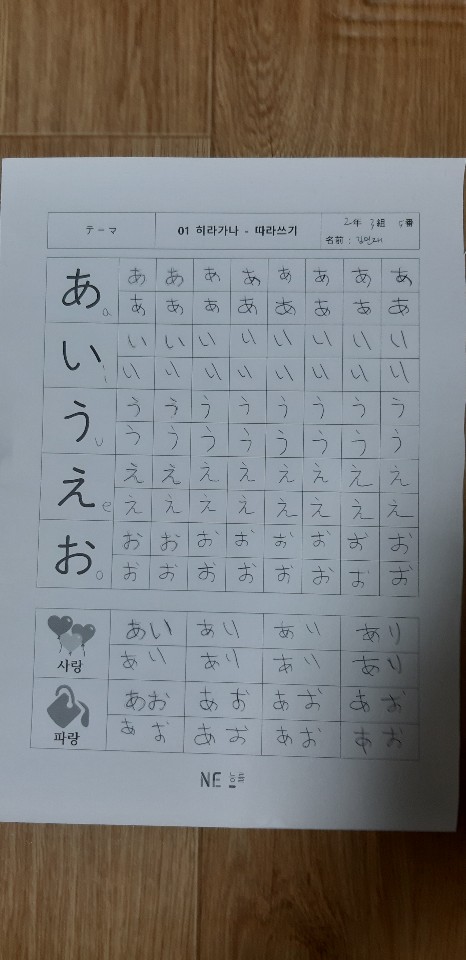 テーマ 01 히라가나 - 따라쓰기 2年 3組 5番
名前 : 김민재
あ a あ あ あ あ あ あ あ あ
あ あ あ あ あ あ あ あ
い i い い い い い い い い
い い い い い い い い
う u う う う う う う う う
う う う う う う う う
え e え え え え え え え え
え え え え え え え え
お o お お お お お お お お
お お お お お お お お
사랑 あい あい あい あい
あい あい あい あい
파랑 あお あお あお あお
あお あお あお あお
NE 능률